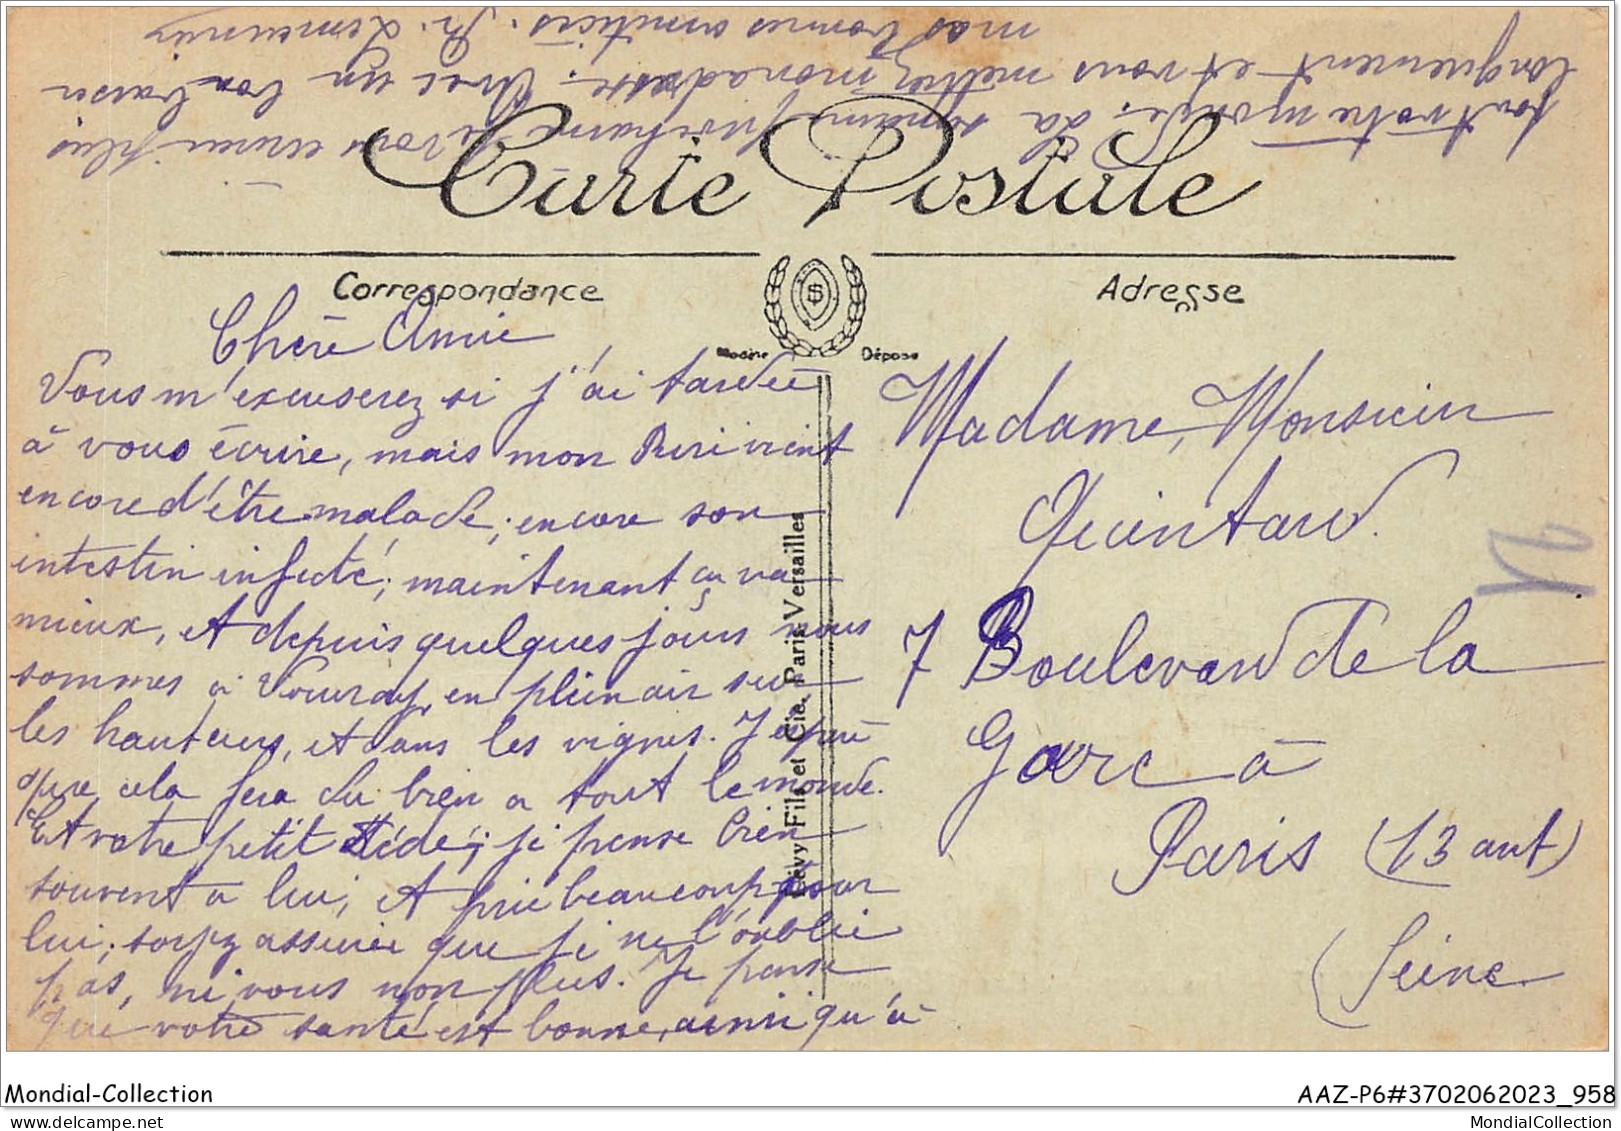 Carte Postale
Correspondance
Adresse
Modèle Déposé
Lévy Fils et Cie, Paris-Versailles
Chère Amie
Vous m'excuserez si j'ai tardée
à vous écrire, mais mon vient
encore d'être malade, encore son
intestin infecté; maintenant ça va
mieux, et depuis quelques jours nous
sommes à Vouvray, en plein air sur
les hauteurs, et dans les vignes. J'espère
que cela fera du bien a tout le monde.
Et votre petit Dédé; je pense bien
souvent a lui, et prie beaucoup pour
lui; soyez assurée que je ne l'oublie
pas, ni vous non plus. Je pense
que votre santé est bonne, ainsi qu'à
tout votre monde. La semaine prochaine je vous écrirai plus
longuement et vous mettrez mon adresse. Avec un bon baiser
mes bonnes amitiés.
Madame, Monsieur
Quintard.
7 Boulevard de la
Gare à
Paris (13 arrt)
(Seine
Mondial-Collection
AAZ-P6#3702062023_958
MondialCollection
MondialCollection